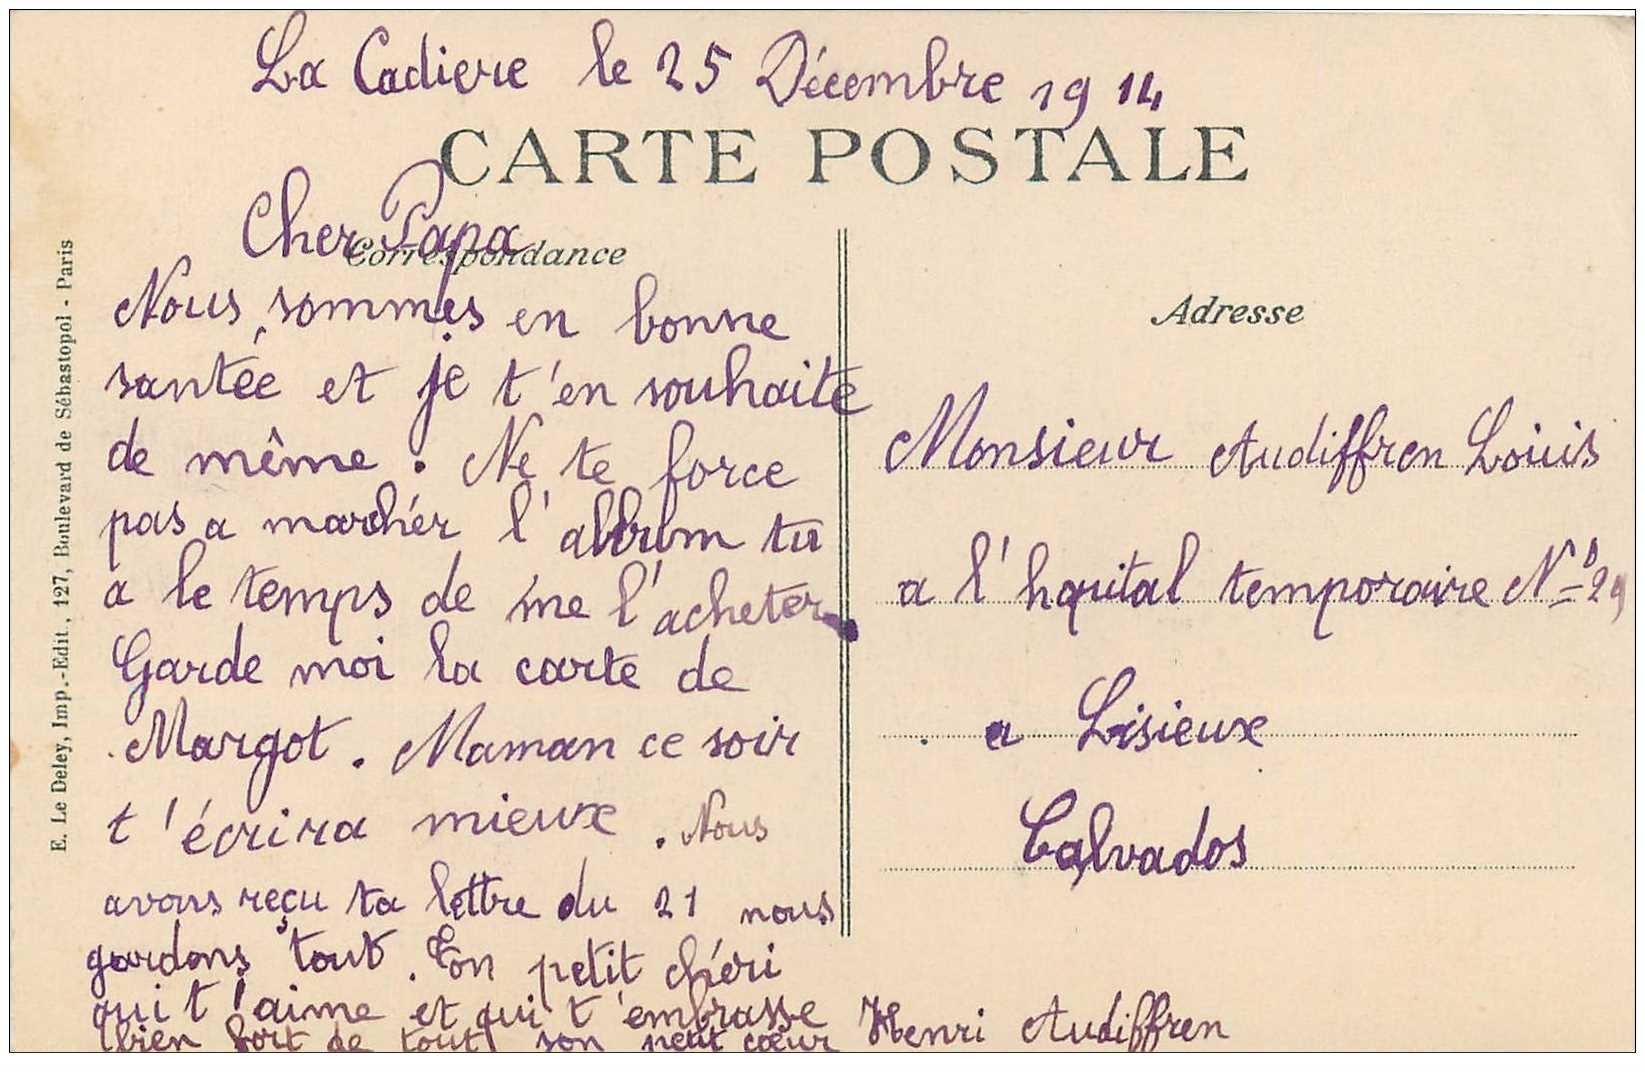 La Cadiere le 25 Décembre 1914
CARTE POSTALE
Cher Papa
Correspondance
Nous sommes en bonne
santée et je t'en souhaite
de même. Ne te force
pas a marchér l'album tu
a le temps de me l'acheter.
Garde moi la carte de
Margot. Maman ce soir
t'écrira mieux. Nous
avons reçu ta lettre du 21 nous
gardons tout. Ton petit chéri
qui t'aime et qui t'embrasse
bien fort de tout son petit cœur Henri Audiffren
Adresse
Monsieur Audiffren Louis
a l'hopital temporaire N° 29
a Lisieux
Calvados
E. Le Deley, Imp.-Edit., 127, Boulevard de Sébastopol - Paris